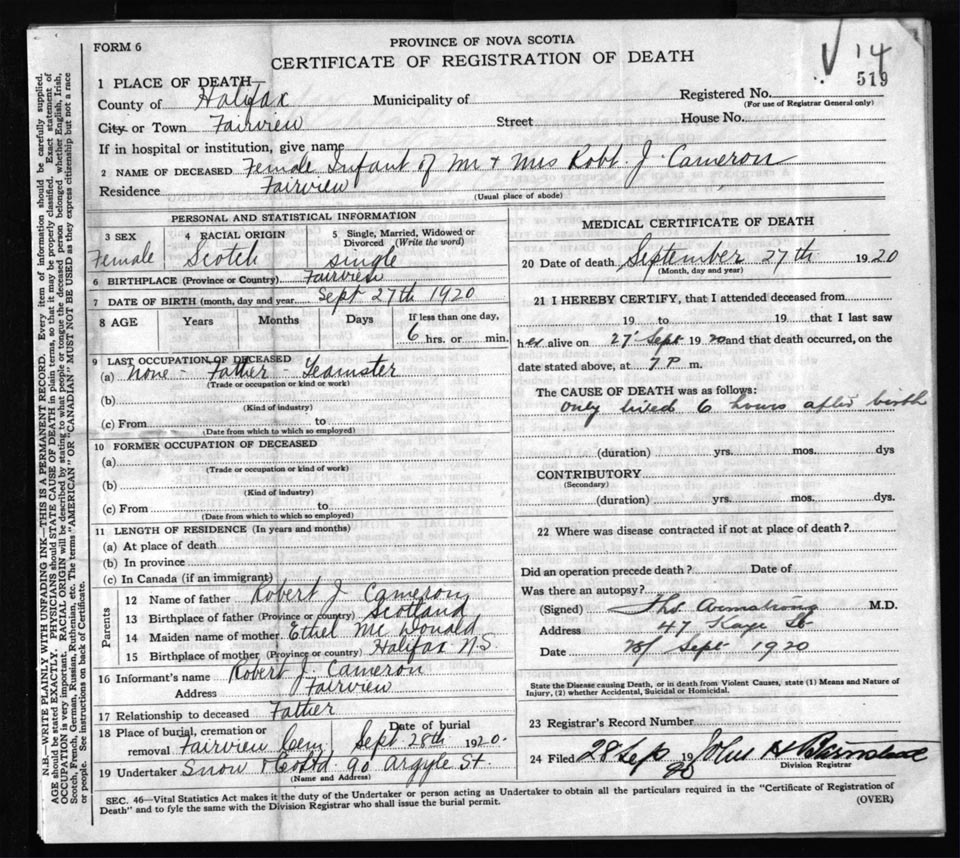 FORM 6
PROVINCE OF NOVA SCOTIA
CERTIFICATE OF REGISTRATION OF DEATH
14
519
1 PLACE OF DEATH—
County of Halifax Municipality of
Registered No.
(For use of Registrar General only)
City or Town Fairview Street House No.
If in hospital or institution, give name
2 NAME OF DECEASED Female Infant of Mr & Mrs Robt. J. Cameron
Residence Fairview
(Usual place of abode)
PERSONAL AND STATISTICAL INFORMATION
3 SEX
Female
4 RACIAL ORIGIN
Scotch
5 Single, Married, Widowed or Divorced (Write the word)
single
6 BIRTHPLACE (Province or Country) Fairview
7 DATE OF BIRTH (month, day and year) Sept 27th 1920
8 AGE Years Months Days If less than one day,
6 hrs. or min.
9 LAST OCCUPATION OF DECEASED
(a) None - Father - Teamster
(Trade or occupation or kind or work)
(b)
(Kind of industry)
(c) From to
(Date from which to which so employed)
10 FORMER OCCUPATION OF DECEASED
(a)
(Trade or occupation or kind of work)
(b)
(Kind of industry)
(c) From to
(Date from which to which so employed)
11 LENGTH OF RESIDENCE (In years and months)
(a) At place of death
(b) In province
(c) In Canada (if an immigrant)
Parents
12 Name of father Robert J Cameron
13 Birthplace of father (Province or country) Scotland
14 Maiden name of mother Ethel Mc Donald
15 Birthplace of mother (Province or country) Halifax N.S
16 Informant's name Robert J. Cameron
Address Fairview
17 Relationship to deceased Father
18 Place of burial, cremation or removal Fairview Cem
Date of burial
Sept 28th 1920.
19 Undertaker Snow & Co Ltd 90 Argyle St.
(Name and Address)
MEDICAL CERTIFICATE OF DEATH
20 Date of death September 27th 1920
(Month, day and year)
21 I HEREBY CERTIFY, that I attended deceased from
19 to 19 that I last saw
her alive on 27 Sept 1920 and that death occurred, on the
date stated above, at 7 P m.
The CAUSE OF DEATH was as follows:
Only lived 6 hours after birth
(duration) yrs. mos. dys
CONTRIBUTORY
(Secondary)
(duration) yrs. mos. dys.
22 Where was disease contracted if not at place of death?
Did an operation precede death? Date of
Was there an autopsy?
(Signed) Thos Armstrong M.D.
Address 47 Kaye St
Date 28/ Sept 1920
State the Disease causing Death, or in death from Violent Causes, state (1) Means and Nature of Injury, (2) whether Accidental, Suicidal or Homicidal.
23 Registrar's Record Number
24 Filed 28 Sep 1920 John H
Division Registrar
SEC. 46—Vital Statistics Act makes it the duty of the Undertaker or person acting as Undertaker to obtain all the particulars required in the "Certificate of Registration of
Death" and to fyle the same with the Division Registrar who shall issue the burial permit.
(OVER)
N.B.—WRITE PLAINLY WITH UNFADING INK—THIS IS A PERMANENT RECORD. Every item of information should be carefully supplied.
AGE should be stated EXACTLY. PHYSICIANS should STATE CAUSE OF DEATH in plain terms, so that it may be properly classified. Exact statement of
OCCUPATION is very important. RACIAL ORIGIN will be described by stating to what people or tongue the deceased person belonged whether English, Irish,
Scotch, French, German, Russian, Ruthenian, etc. The terms "AMERICAN" OR "CANADIAN" MUST NOT BE USED as they express citizenship but not a race
or people. See instructions on back of Certificate.